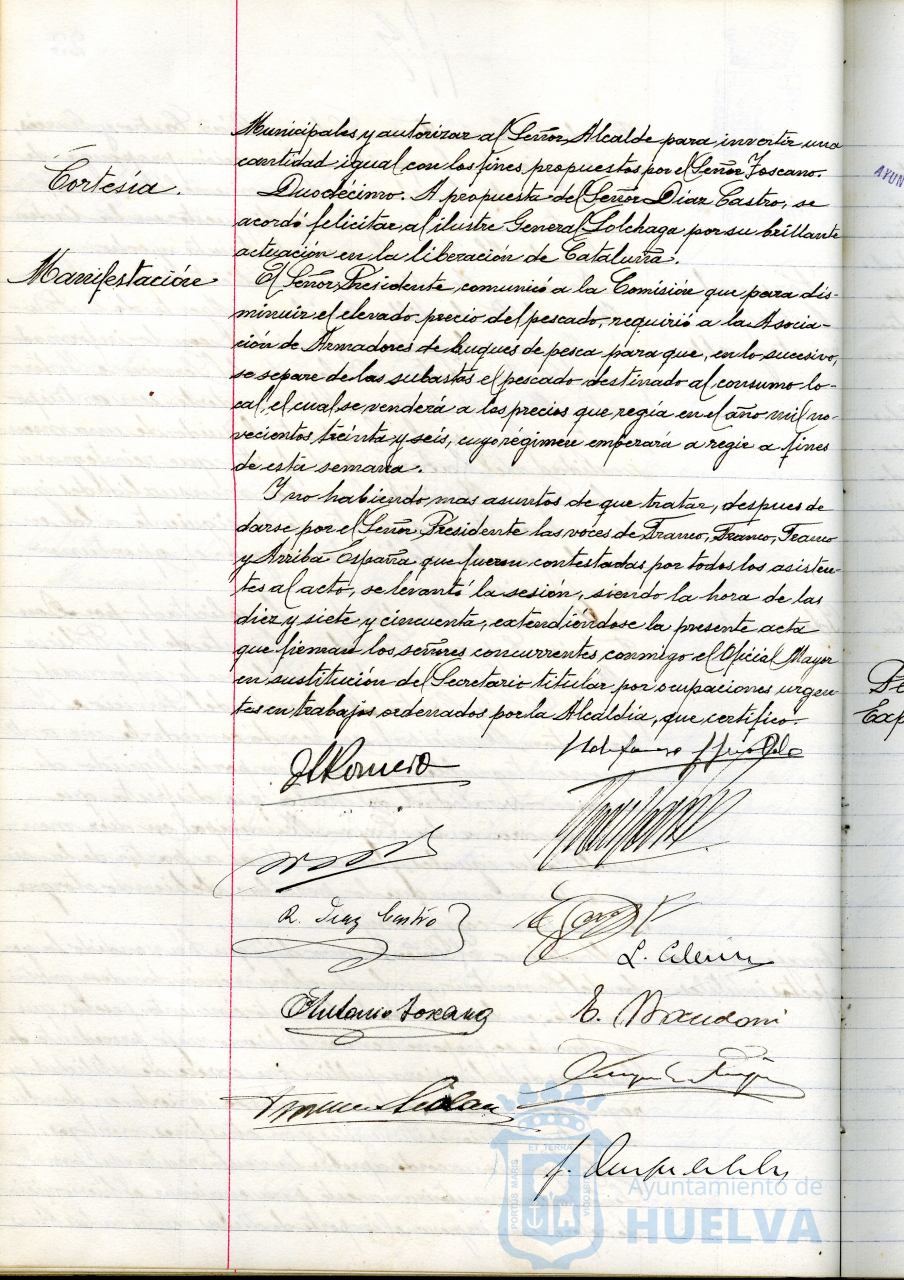 Municipales y autorizar al Señor Alcalde para invertir una
cantidad igual con los fines propuestos por el Señor Toscano.
Cortesía.
Duodécimo. A propuesta del Señor Díaz Castro, se
acordó felicitar al ilustre General Solchaga por su brillante
actuación en la liberación de Cataluña.
Manifestación
El Señor Presidente comunicó a la Comisión que para dis-
minuir el elevado precio del pescado, requirió a la Asocia-
ción de Armadores de buques de pesca para que, en lo sucesivo,
se separe de las subastas el pescado destinado al consumo lo-
cal, el cual se venderá a los precios que regía en el año mil no-
vecientos treinta y seis, cuyo régimen empezará a regir a fines
de esta semana.
Y no habiendo mas asuntos de que tratar, despues de
darse por el Señor Presidente las voces de Franco, Franco, Franco
y Arriba España que fueron contestadas por todos los asisten-
tes al acto, se levantó la sesión, siendo la hora de las
diez y siete y cincuenta, extendiéndose la presente acta
que firman los señores concurrentes conmigo el Oficial Mayor
en sustitución del Secretario titular por ocupaciones urgen-
tes en trabajos ordenados por la Alcaldía, que certifico.
Romero
R. Diaz Castro
Antonio Toscano
ET TERRAE
PORTUS MARIS
CUSTODIA
Ayuntamiento de
HUELVA
AYUN
De
Exp